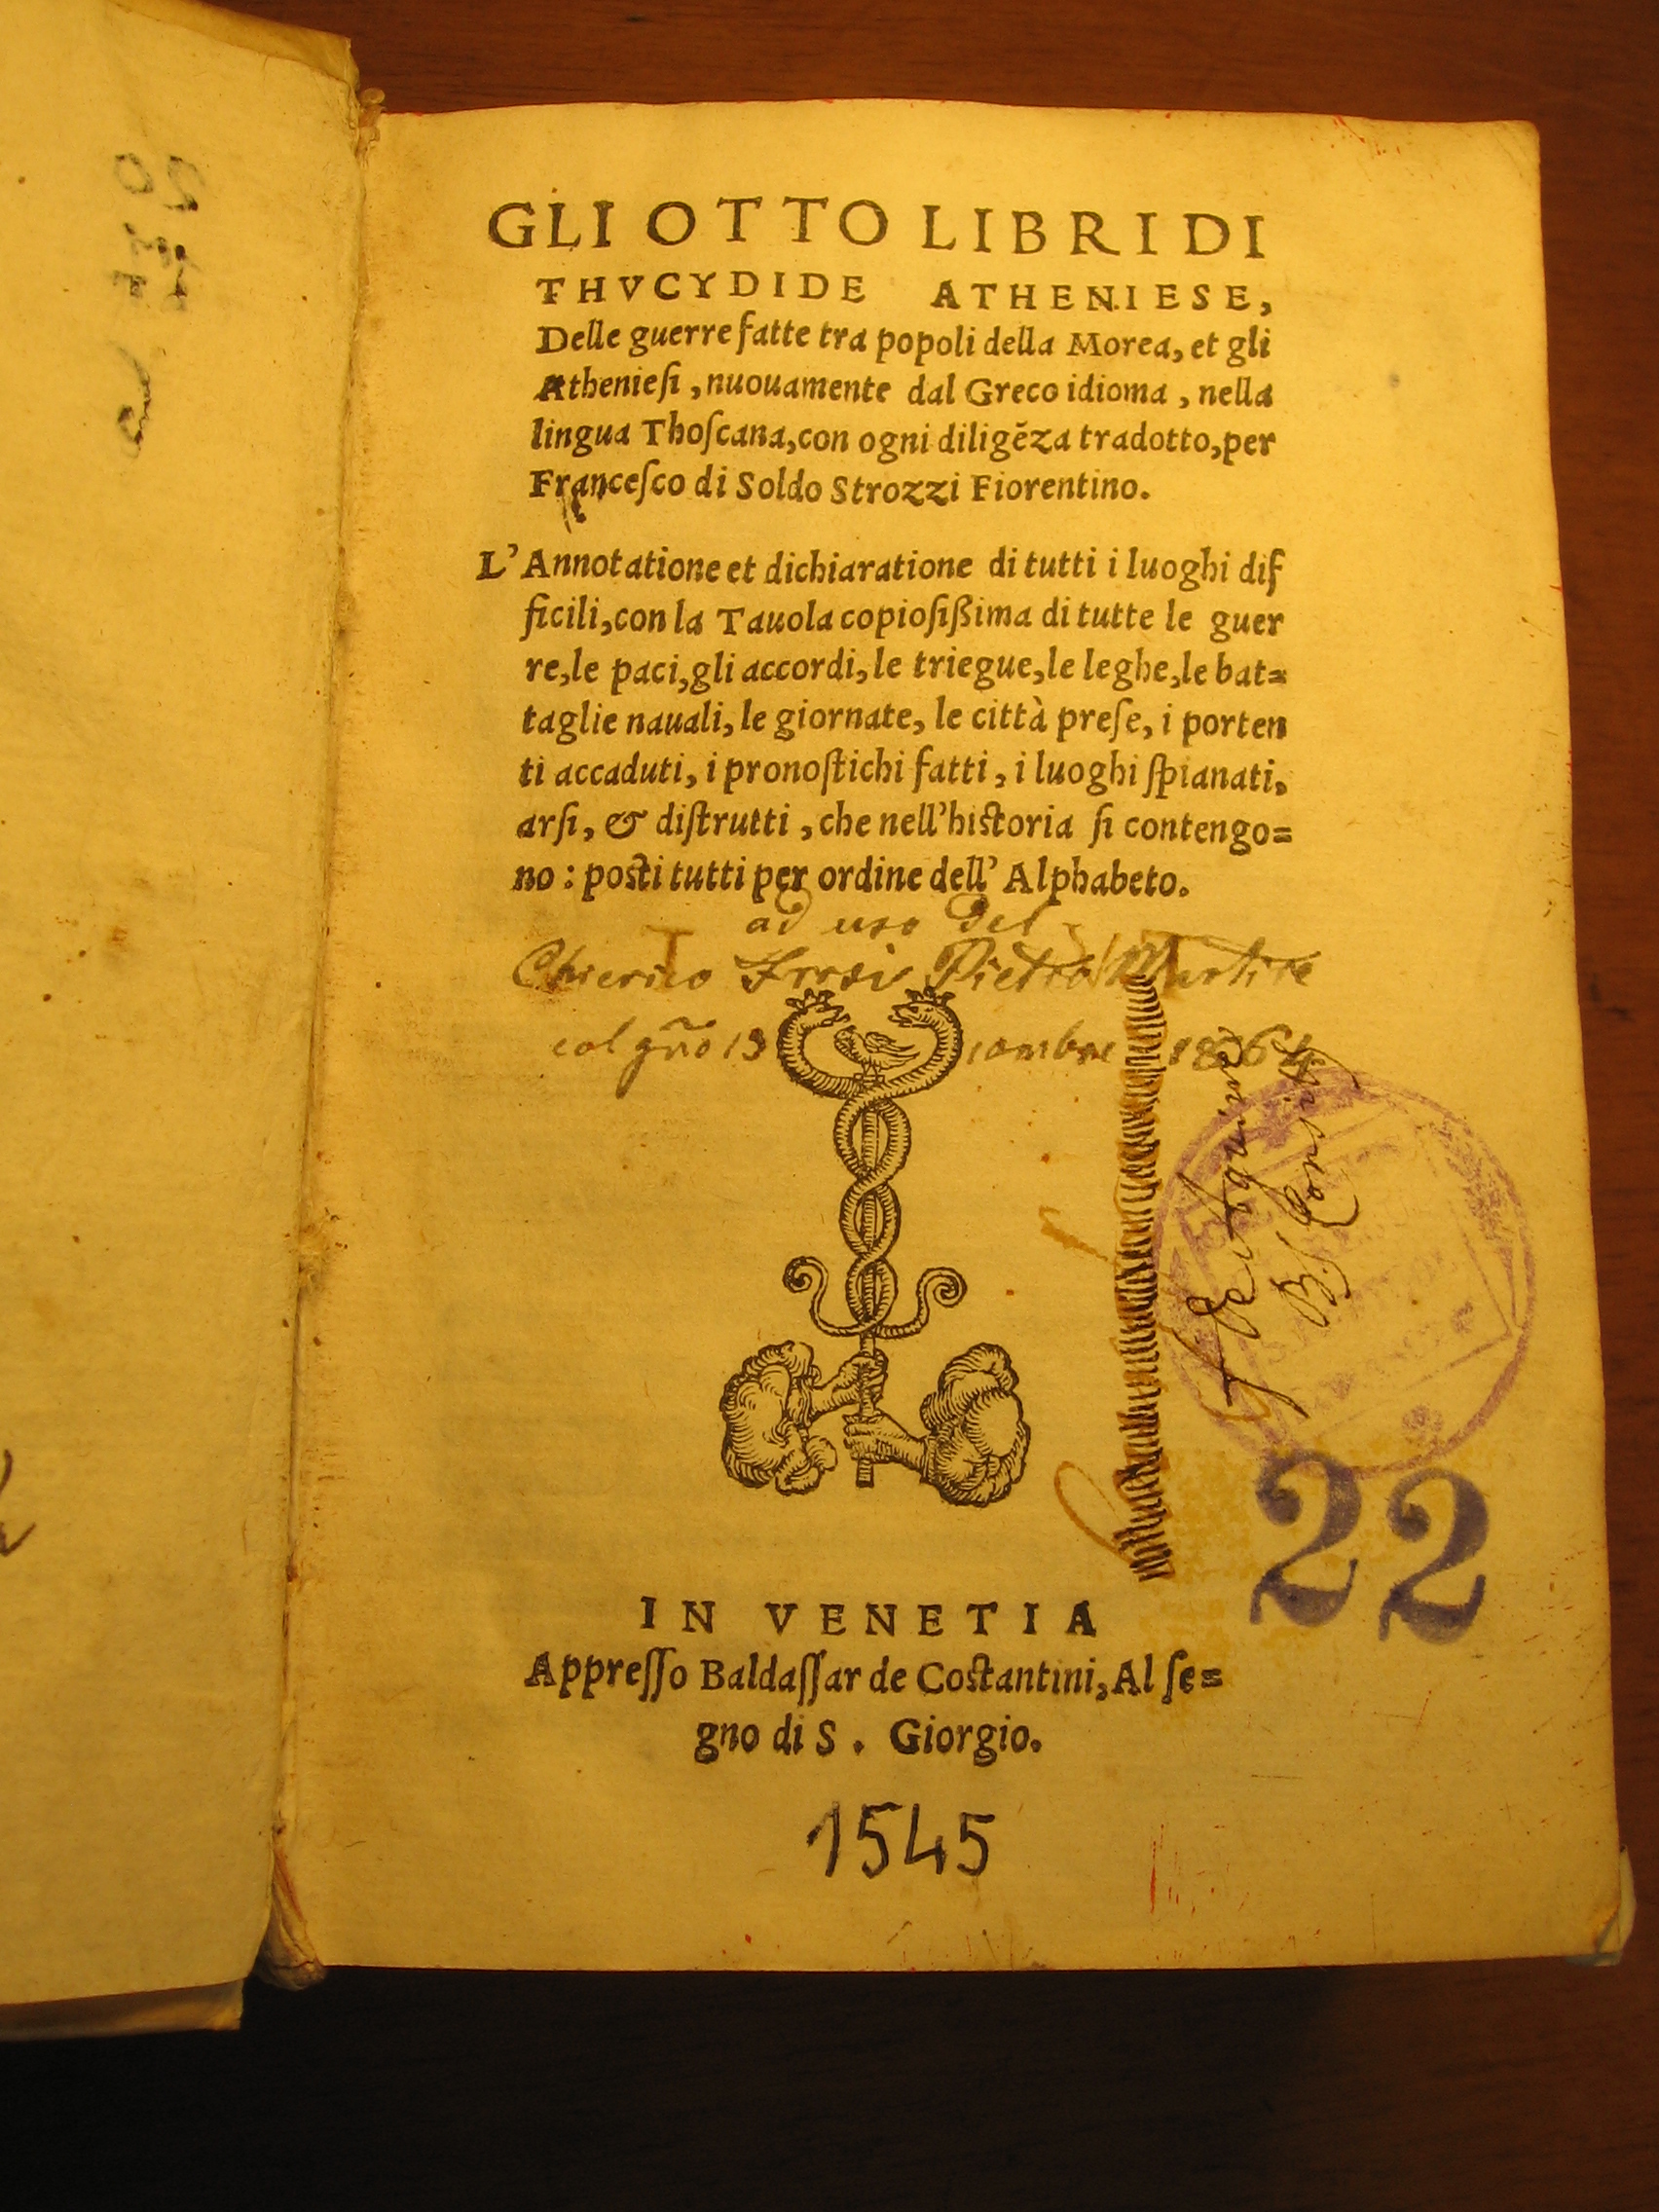 GLI OTTO LIBRI DI
THVCYDIDE ATHENIESE,
Delle guerre fatte tra popoli della Morea, et gli
Athenieſi, nuouamente dal Greco idioma, nella
lingua Thoſcana, con ogni diligẽza tradotto, per
Franceſco di Soldo Strozzi Fiorentino.
L'Annotatione et dichiaratione di tutti i luoghi dif
ficili, con la Tauola copioſißima di tutte le guer
re, le paci, gli accordi, le triegue, le leghe, le bat=
taglie nauali, le giornate, le città preſe, i porten
ti accaduti, i pronoſtichi fatti, i luoghi ſpianati,
arſi, & diſtrutti, che nell'hiſtoria ſi contengo=
no: poſti tutti per ordine dell'Alphabeto.
ad uso del
Chierico Pietro Martire
1864
22
IN VENETIA
Appreſſo Baldaſſar de Coſtantini, Al ſe=
gno di S. Giorgio.
1545